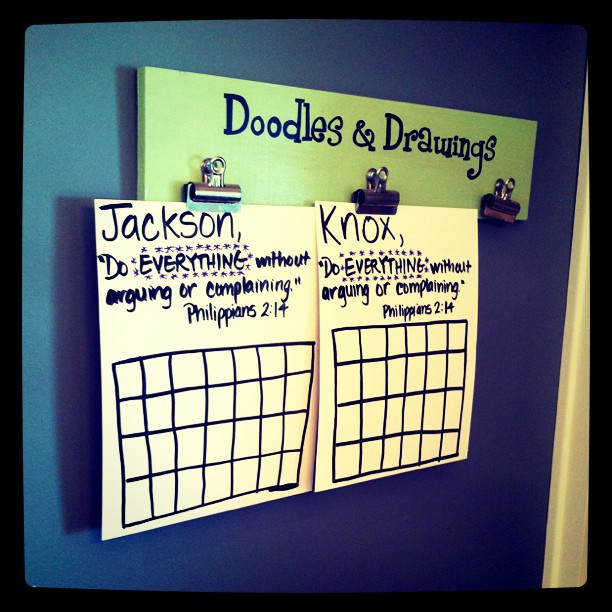 Doodles & Drawings
Jackson,
"Do EVERYTHING without
arguing or complaining."
Philippians 2:14
Knox,
"Do EVERYTHING without
arguing or complaining."
Philippians 2:14